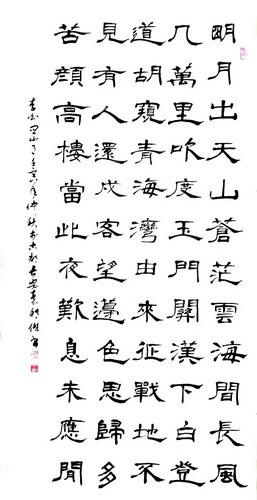 明月出天山蒼茫雲海間長風
几萬里吹度玉門關漢下白登
道胡窺青海灣由來征戰地不
見有人還戍客望邊色思歸多
苦顏高樓當此夜歎息未應閒
李白關山月仲秋於古都長安